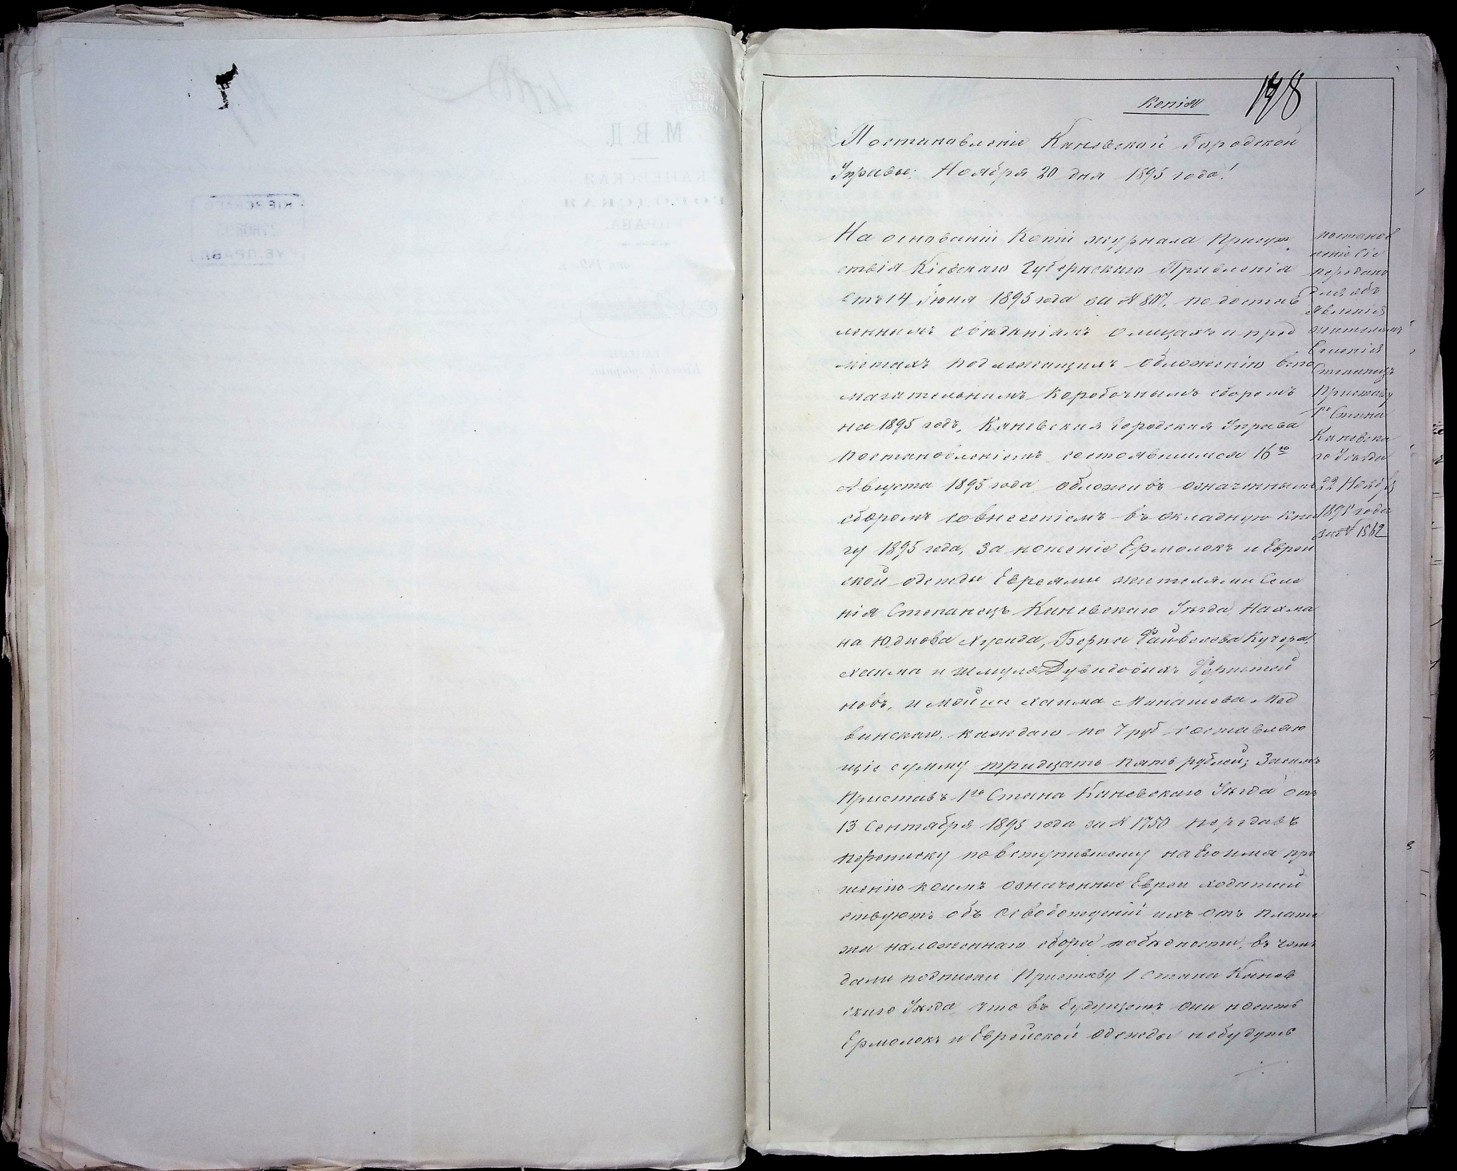 Копія
198
Постановленіе Каневской Городской
Управы. Ноября 20 дня 1895 года.
На основаніи копіи журнала Присут
ствія Кіевскаго Губернскаго Правленія
отъ 14 Іюня 1895 года за № по достав
леннымъ свѣденіямъ о лицахъ и пред
метахъ подлежащихъ обложенію вспо
магательнымъ коробочнымъ сборомъ
на 1895 годъ, Каневская Городская Управа
постановленіемъ состоявшимся 16го
Августа 1895 года обложивъ означеннымъ
сборомъ со внесеніемъ въ окладную кни
гу 1895 года, за ношеніе Ермолокъ и Еврей
ской одежды Евреями жителями Селе
нія Степанецъ Каневскаго Уѣзда Нахма
на Юдкова Мусида, Берка Файвелева Кучера,
Хаима и Шмуля Дувидовыхъ
новъ, и Мойше Хаима Манашева Мед
винскаго каждаго по 7 руб составляю
щіе сумму тридцать пять рублей; Засимъ
Приставъ 1го Стана Каневскаго Уѣзда отъ
13 Сентября 1895 года за № 1750 передавъ
переписку по вступившему на Его имя про
шенію коимъ означенные Евреи ходатай
ствуютъ объ освобожденіи ихъ отъ плате
жа наложеннаго сбора по бѣдности, въ чемъ
дали подписки Приставу 1 Стана Канев
скаго Уѣзда что въ будущемъ они носить
Ермолокъ и Еврейской одежды небудутъ
постанов
леніе Сіе
передано
для объ
явленія
жителямъ
Селенія
Степанецъ
Приставу
1го Стана
Каневска
го Уѣзда
22 Ноября
1895 года
за № 1542